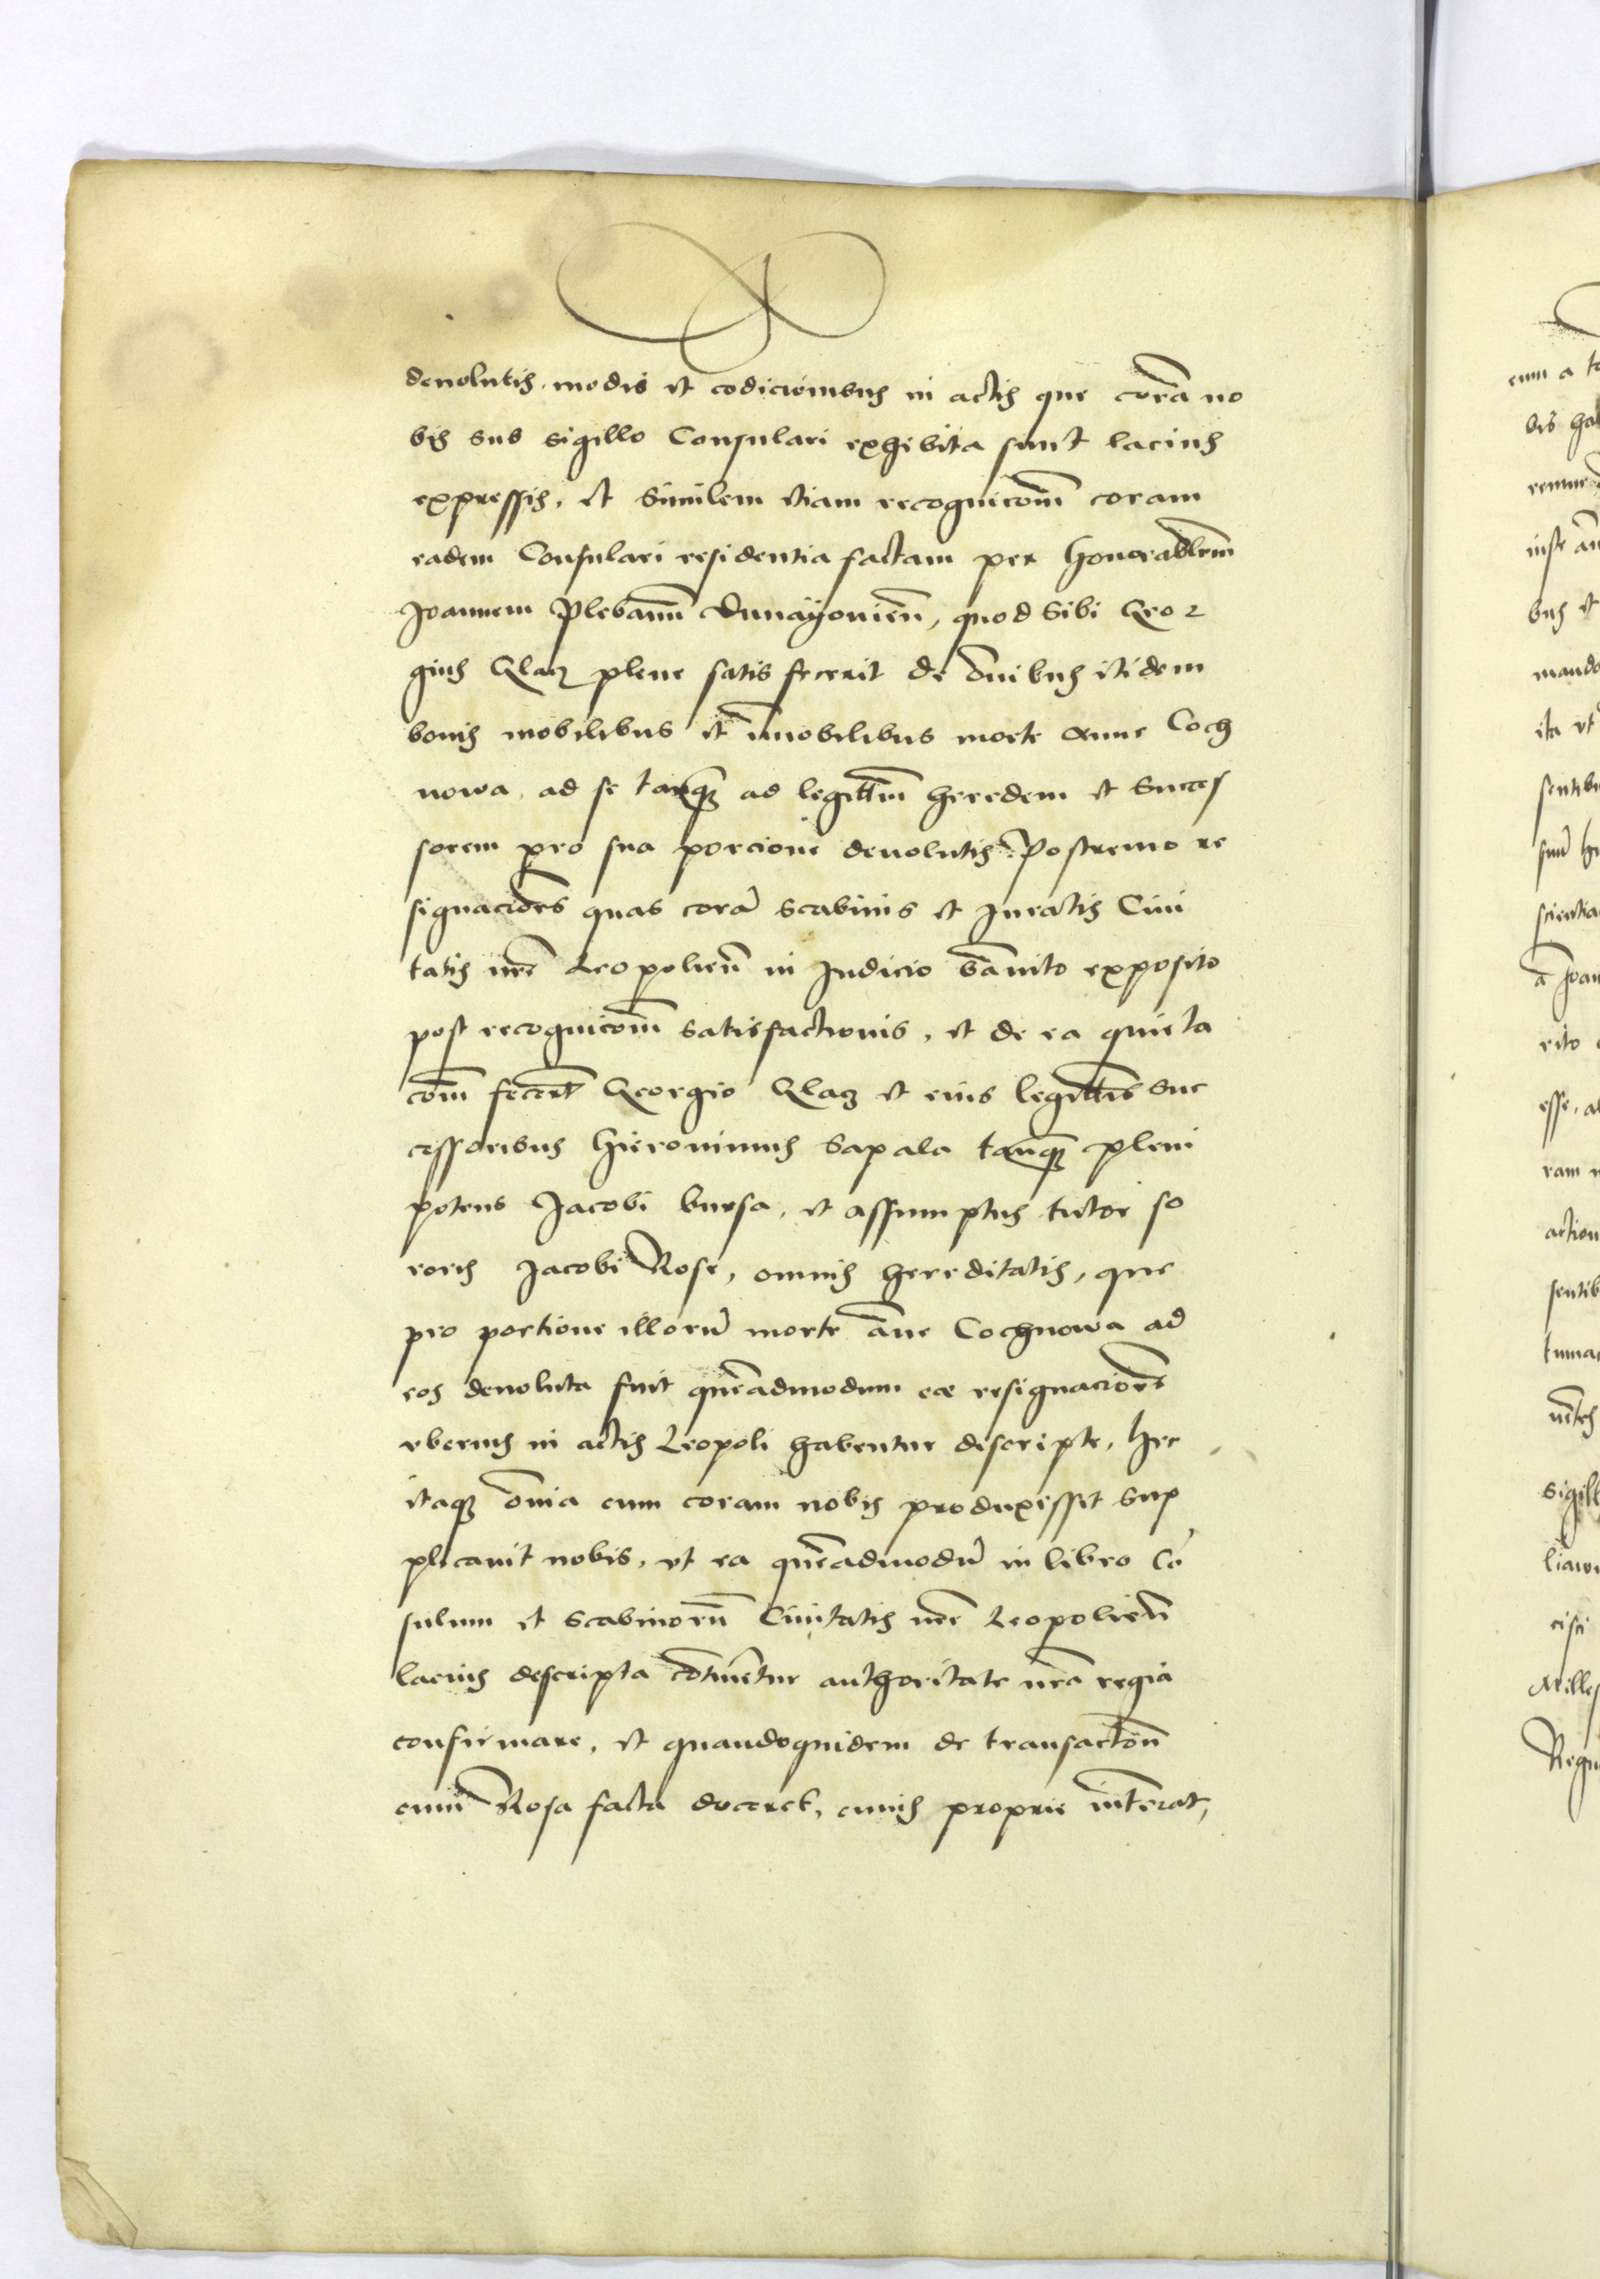 deuolutis, modis et codicionibus in actis que corã no
bis sub sigillo Consulari exhibita sunt lacius
expressis, et Similem etiam recognicom̃ coram
eadem Consulari residentia factam per honorablem̃
Joannem Plebanũ Dunayouieñ, quod sibi Geor
gius Glacz plene satis fecerit de om̃ibus itidem
bonis mobilibus et im̃obilibus morte Anne Coch
nowa, ad se tanq̃ ad legittim̃ heredem et Succes
sorem pro sua porcione deuolutis. Postremo re
signaciones quas corã Scabinis et Juratis Ciui
tatis nr̃e Leopolieñ in Judicio bãnito exposito
post recognicom̃ satisfactionis, et de ea quieta
com̃ fecer̃t Georgio Glacz et eius legittĩs suc
cessoribus Hieronimus Sapala tanq̃ pleni
potens Jacobi bursa, et assumptus tutor so
roris Jacobi Rose, omnis hereditatis, que
pro portione illorũ morte ãne Cochnowa ad
eos deuoluta fuit quẽadmodum eae resignaciones
vberius in actis Leopoli habentur descripte, hec
itaq̃ om̃ia cum coram nobis produxisset Sup
plicauit nobis, vt ea quẽadmodũ in libro Cõ
sulum et Scabinorũ Ciuitatis nr̃e Leopolieñ
lacius descripta cõtinẽtur authoritate nr̃a regia
confirmare, et quandoquidem de transactioñ
cum Rosa facta doceret, cuius proprie int̃erat,
eum a
bis
mando
ita vt
esse, a
Regn